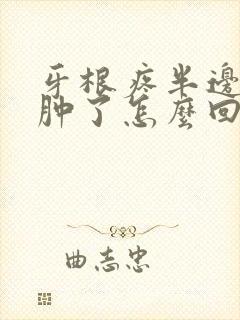 牙根疼半邊
肿了怎麼回
曲志忠